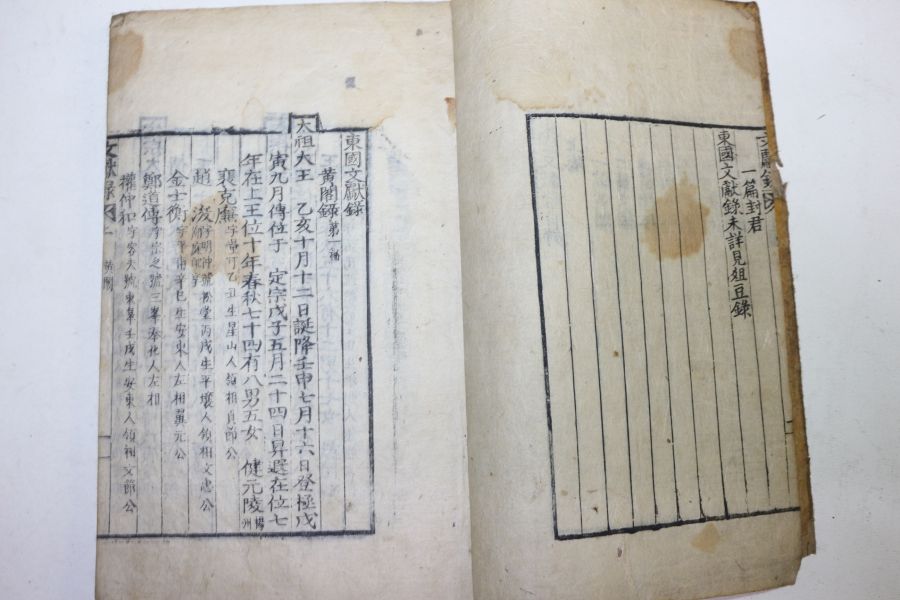 文獻錄
一篇封君
東國文獻錄未詳見俎豆錄
東國文獻錄
黃閣錄第一編
太祖大王 乙亥十月十二日誕降壬申七月十六日登極戊
寅九月傳位于 定宗戊子五月二十四日昇遐在位七
年在上王位十年春秋七十四有八男五女 健元陵楊州
裵克廉字 可乙丑生星山人領相貞節公
趙浚字明仲號松堂丙戌生平壤人領相文忠公
金士衡字平甫辛巳生安東人左相翼元公
鄭道傳字宗之號三峯奉化人左相
權仲和字容夫號東皐壬戌生安東人領相文節公
文獻錄 一 黃閣